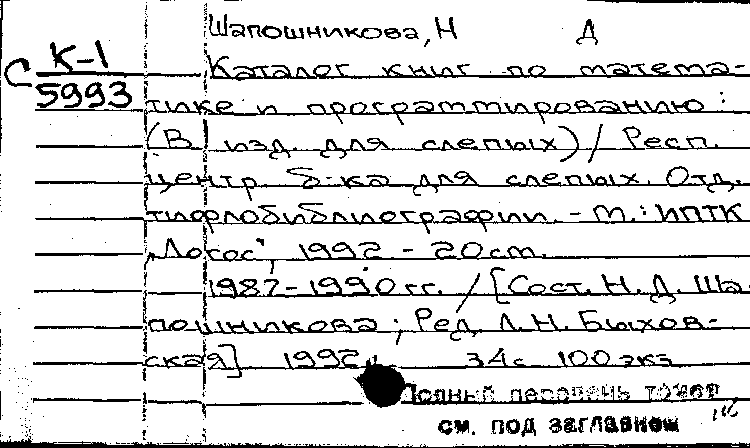 Шапошникова, Н Д
С К-1
5993
Каталог книг по матема-
тике и программированию:
(В изд. для слепых) / Респ.
центр. б-ка для слепых. Отд.
тифлобиблиографии. - М.: ИПТК
„Логос", 1992 - 20 см.
1987-1990 гг. / [Сост. Н. Д. Ша-
пошникова; Ред. Л. Н. Быхов-
ская] 1992 34 с 100 экз
Полный перечень томов
см. под заглавием